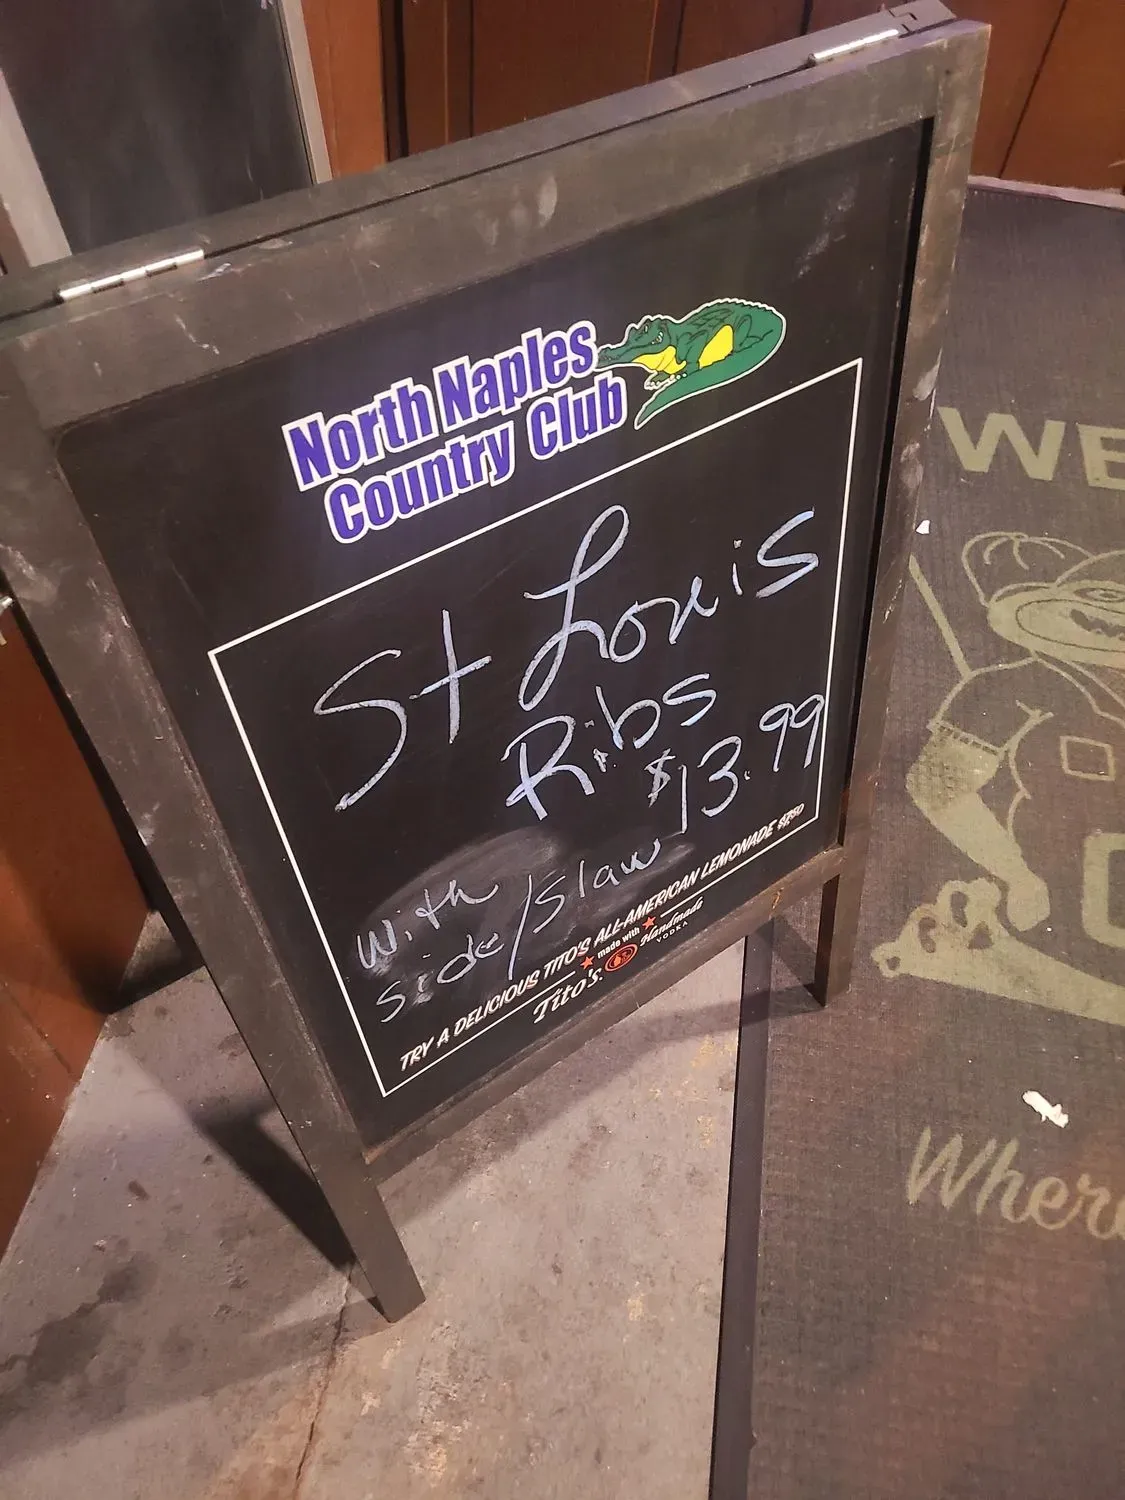 North Naples
Country Club
St Louis
Ribs
$13.99
with
side/slaw
TRY A DELICIOUS TITO'S ALL-AMERICAN LEMONADE
made with
Tito's Handmade
VODKA
WE
Where